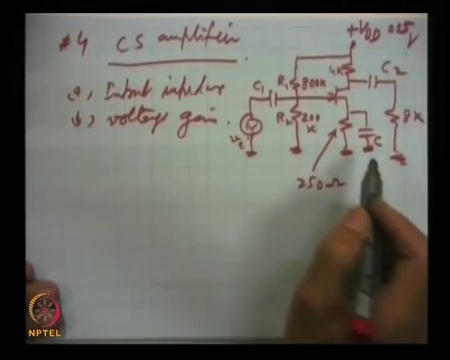 #4 CS amplifier
a, Input impedance
b, voltage gain
+VDD = 25V
R1 800k
4k
C1
C2
R2 200k
8k
C
250Ω
NPTEL